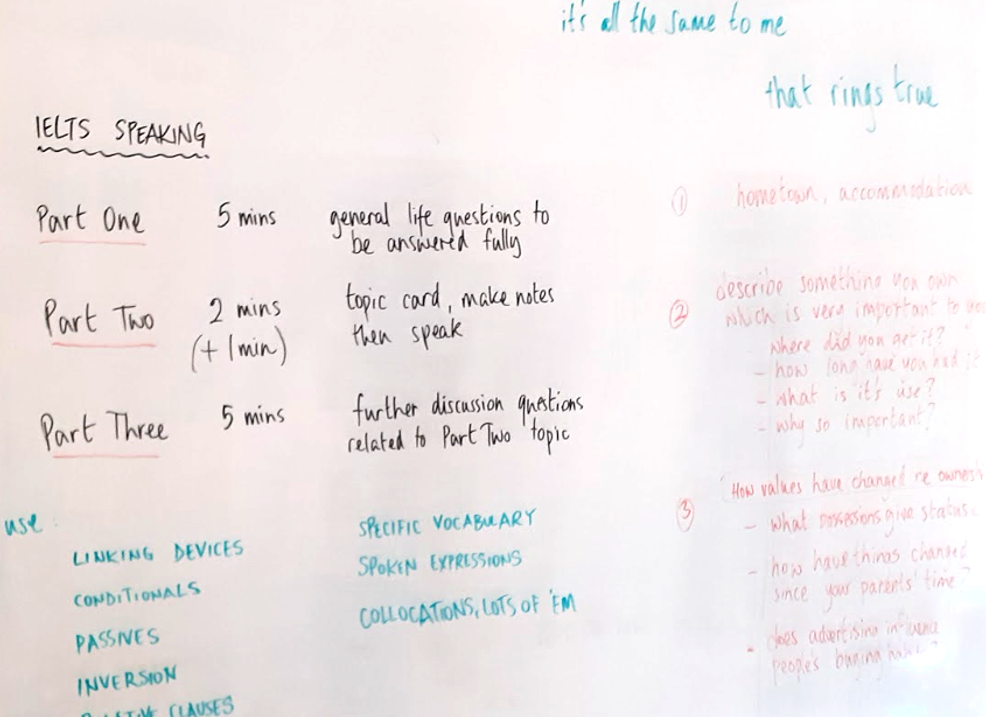 it's all the same to me
that rings true
IELTS SPEAKING
Part One 5 mins general life questions to
be answered fully
Part Two 2 mins topic card, make notes
(+ 1 min) then speak
Part Three 5 mins further discussion questions
related to Part Two topic
use:
LINKING DEVICES
CONDITIONALS
PASSIVES
INVERSION
CLAUSES
SPECIFIC VOCABULARY
SPOKEN EXPRESSIONS
COLLOCATIONS, LOTS OF 'EM
① hometown, accommodation
② describe something you own
which is very important to you
- where did you get it?
- how long have you had it
- what is it's use?
- why so important?
③ How values have changed re
- what possessions give status
- how have things changed
since your parents' time?
- does advertising influence
people's buying